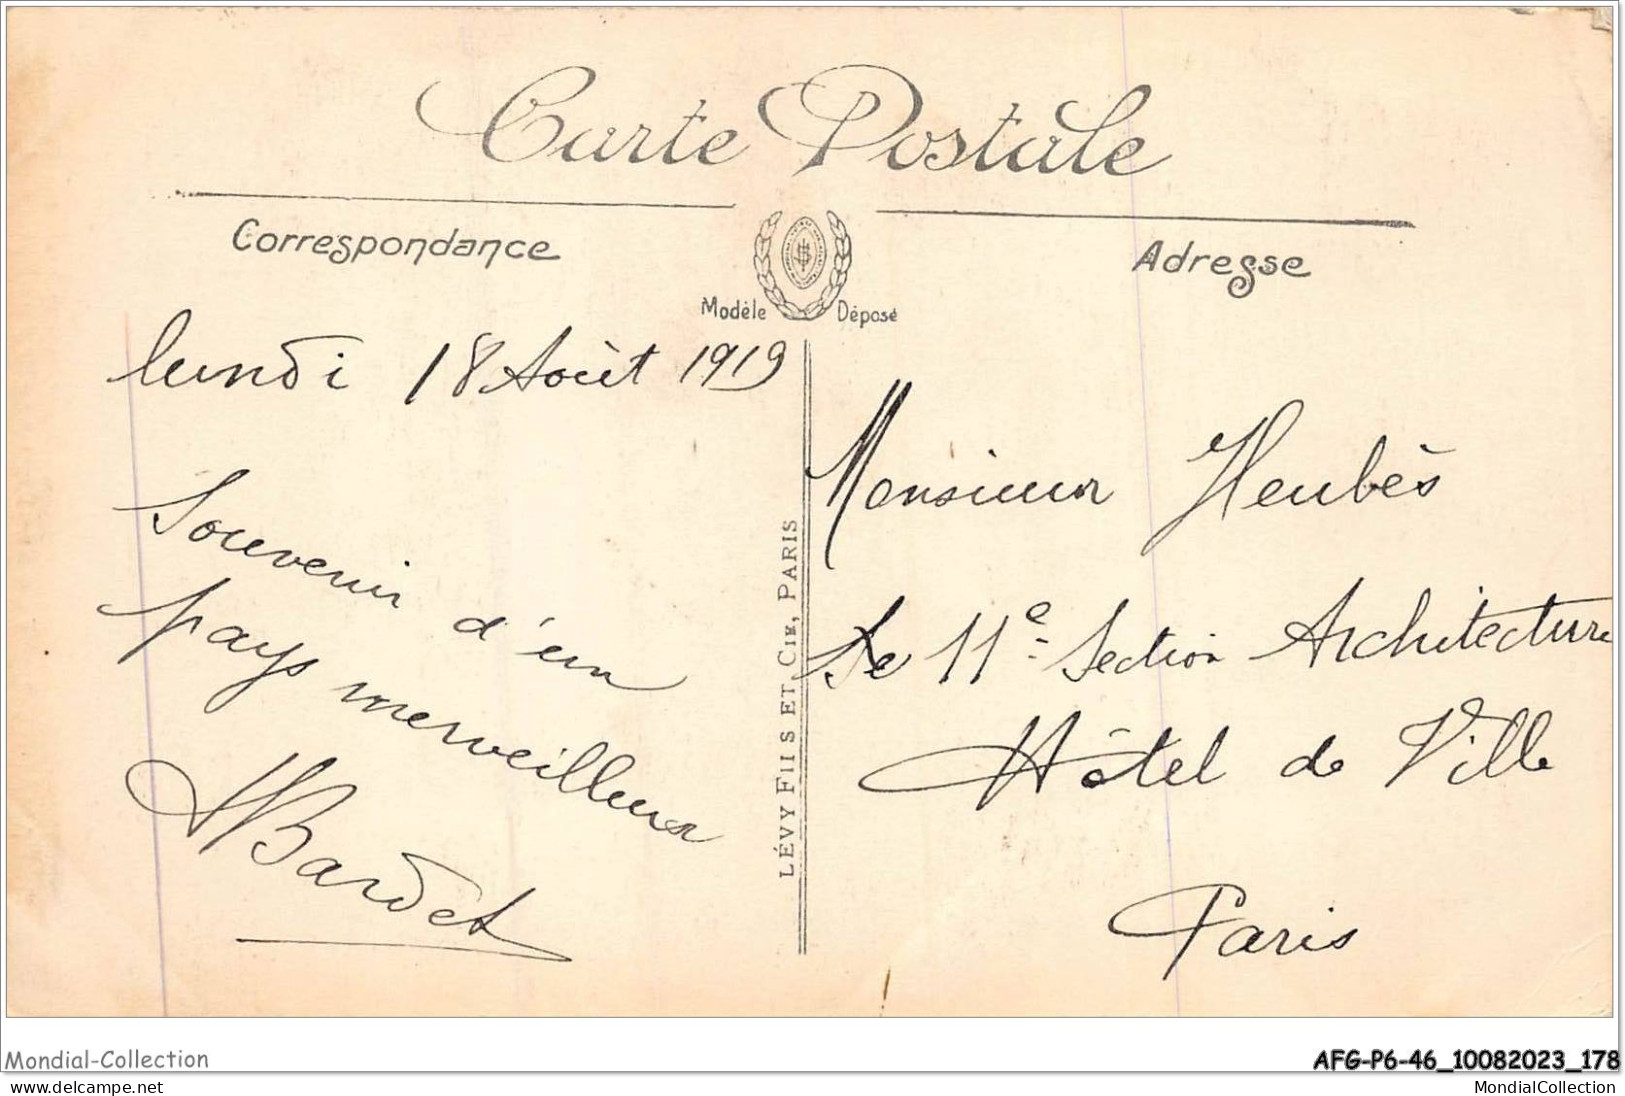 Carte Postale
Correspondance
Adresse
Modèle Déposé
lundi 18 Août 1919
Souvenir d'un
pays merveilleux
HBardet
LÉVY FILS ET CIE, PARIS
Monsieur Heubès
11e Section Architecture
Hôtel de Ville
Paris
Mondial-Collection
AFG-P6-46_10082023_178
www.delcampe.net
MondialCollection